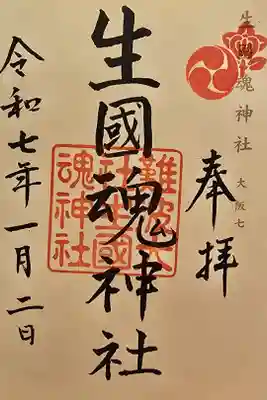 生國魂神社 大阪七
奉拝
生國魂神社
難波大
社生國
魂神社
令和七年一月二日